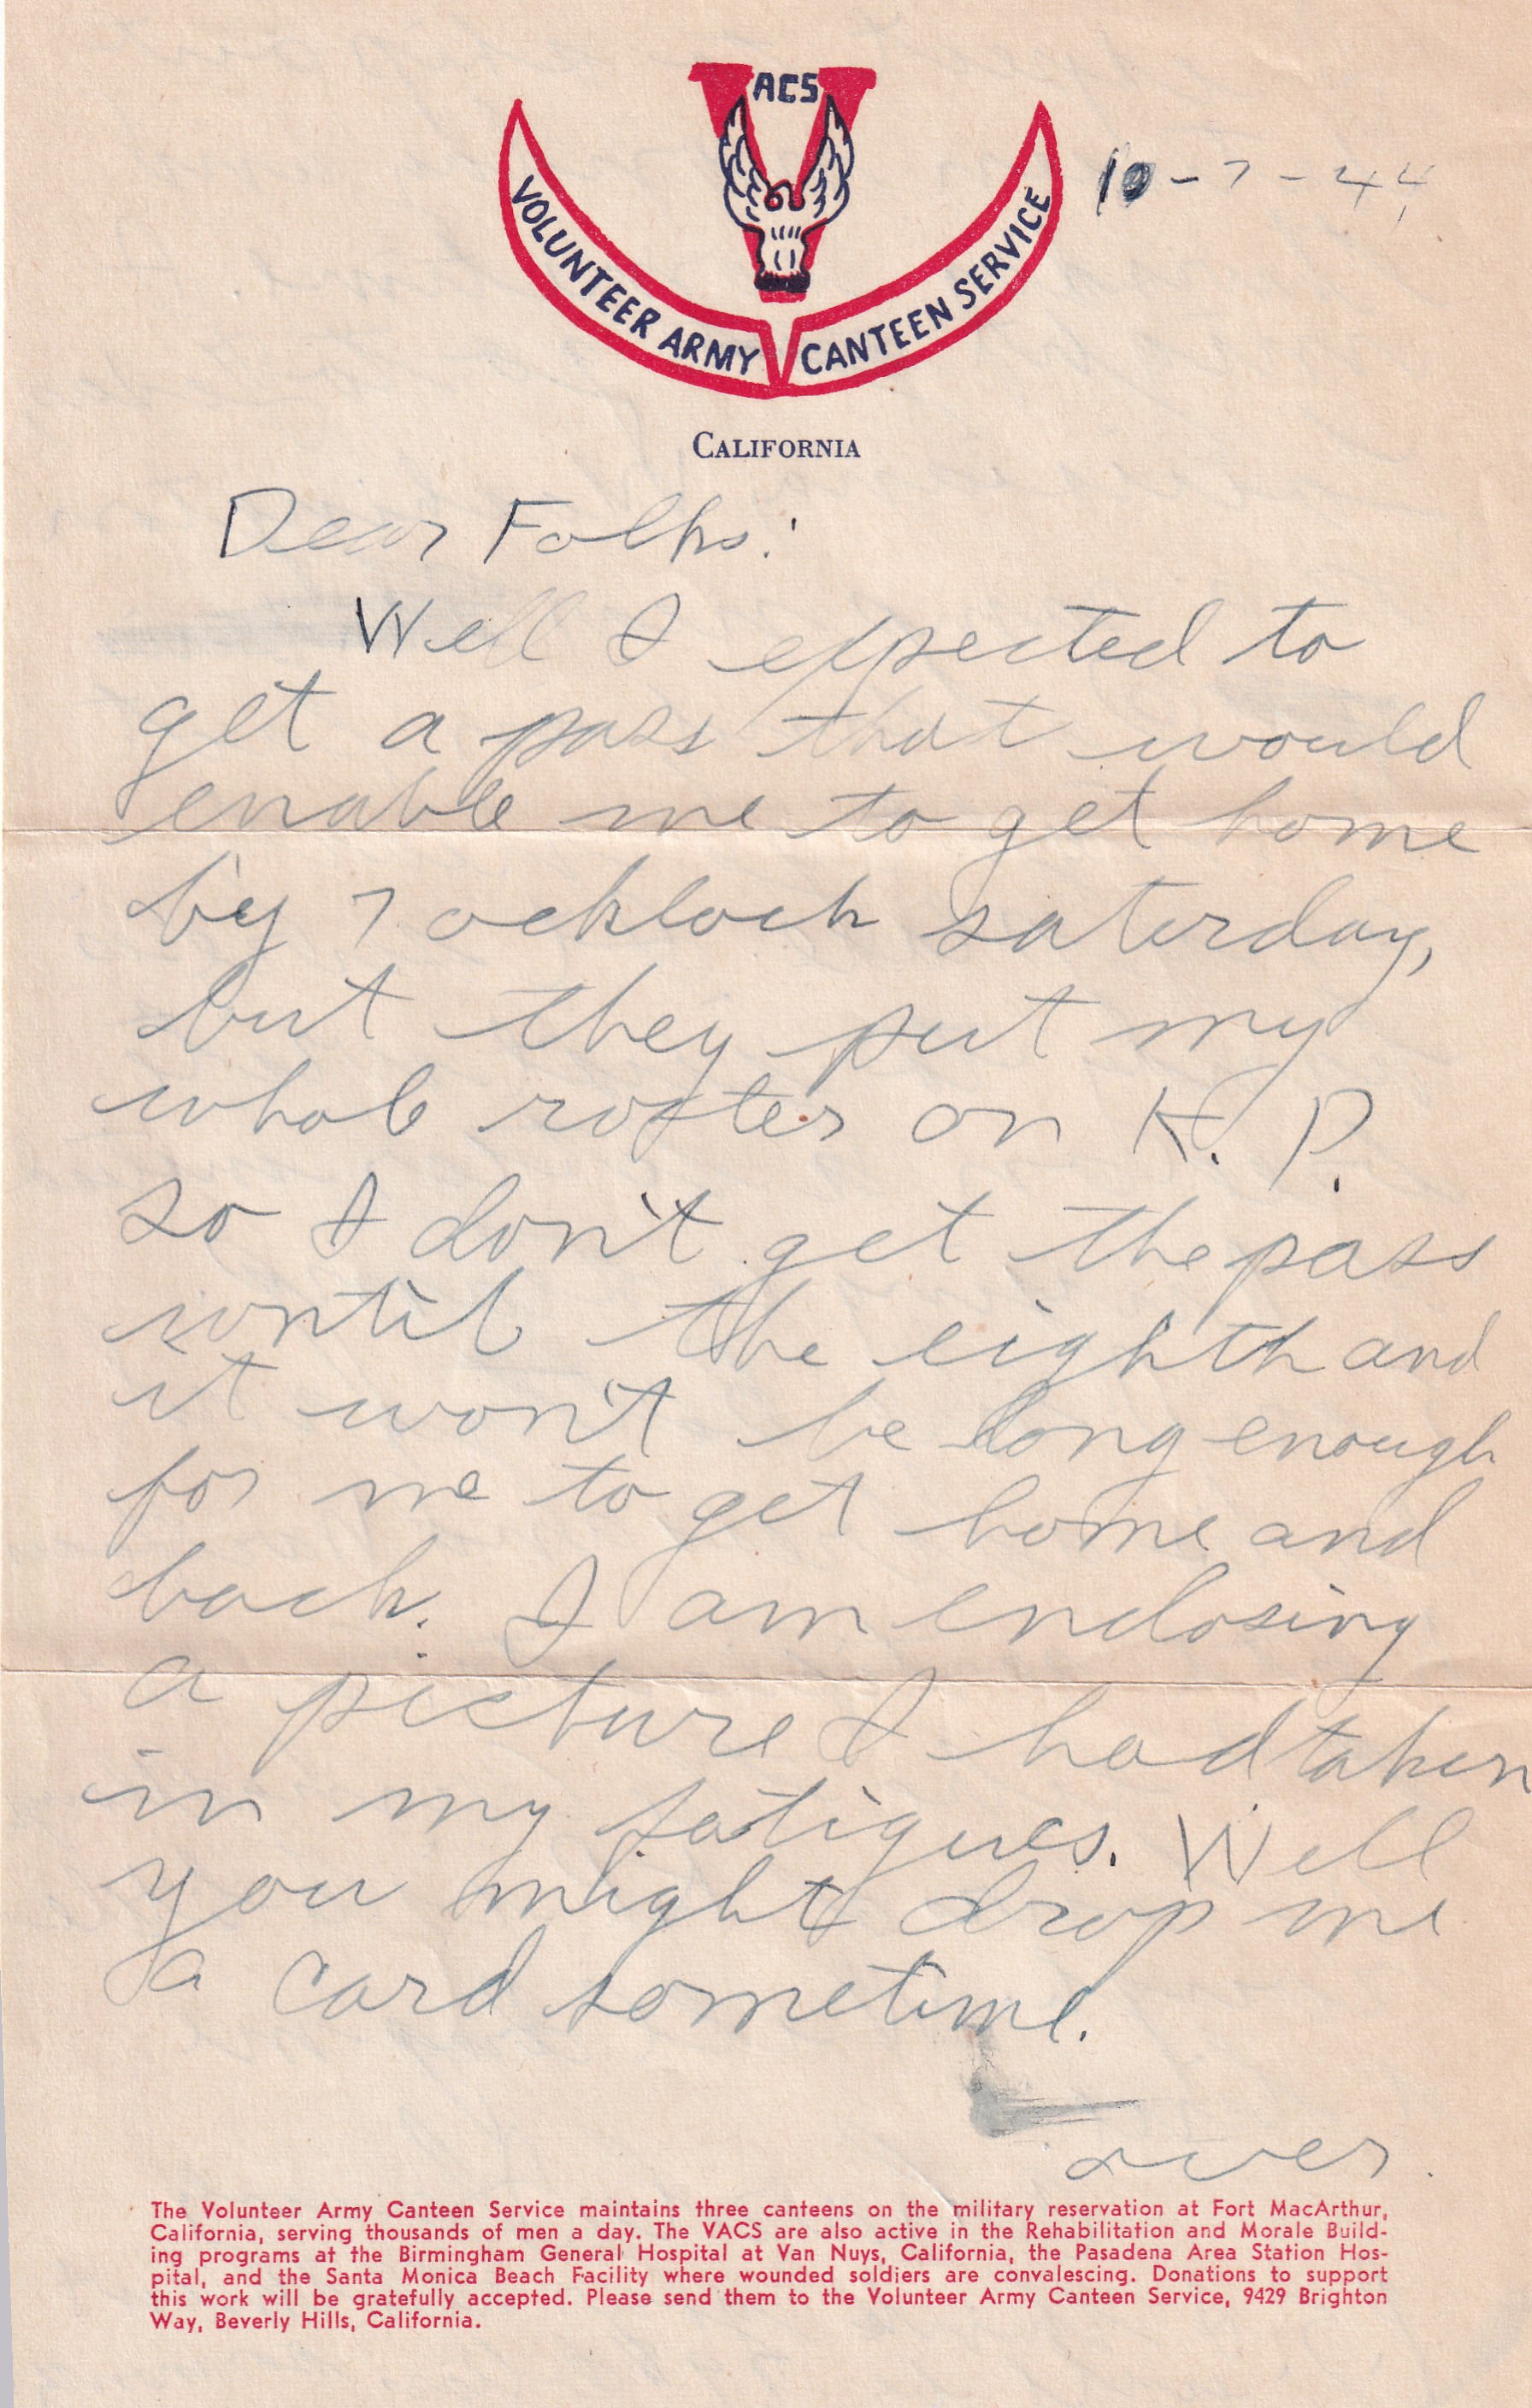 ACS
VOLUNTEER ARMY CANTEEN SERVICE
10-7-44
CALIFORNIA
Dear Folks:
Well I expected to
get a pass that would
enable me to get home
by 7 ocklock saturday,
but they put my
whole roster on K. P.
so I don't get the pass
until the eighth and
it won't be long enough
for me to get home and
back. I am enclosing
a picture I had taken
in my fatigues. Well
you might drop me
a card sometime.
over.
The Volunteer Army Canteen Service maintains three canteens on the military reservation at Fort MacArthur,
California, serving thousands of men a day. The VACS are also active in the Rehabilitation and Morale Build-
ing programs at the Birmingham General Hospital at Van Nuys, California, the Pasadena Area Station Hos-
pital, and the Santa Monica Beach Facility where wounded soldiers are convalescing. Donations to support
this work will be gratefully accepted. Please send them to the Volunteer Army Canteen Service, 9429 Brighton
Way, Beverly Hills, California.